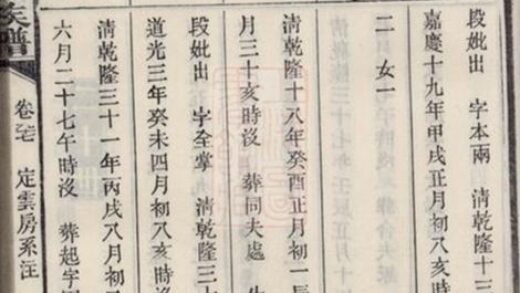 段妣出 字本兩 清乾隆十三
嘉慶十九年甲戌正月初八亥時
二 女一
清乾隆十八年癸酉正月初一
月三十亥時沒 葬同夫處
段妣出 字全掌 清乾隆三
道光三年癸未四月初八亥時
清乾隆三十一年丙戌八月初
六月二十七午時沒 葬起字
族譜 卷 定雲房系注